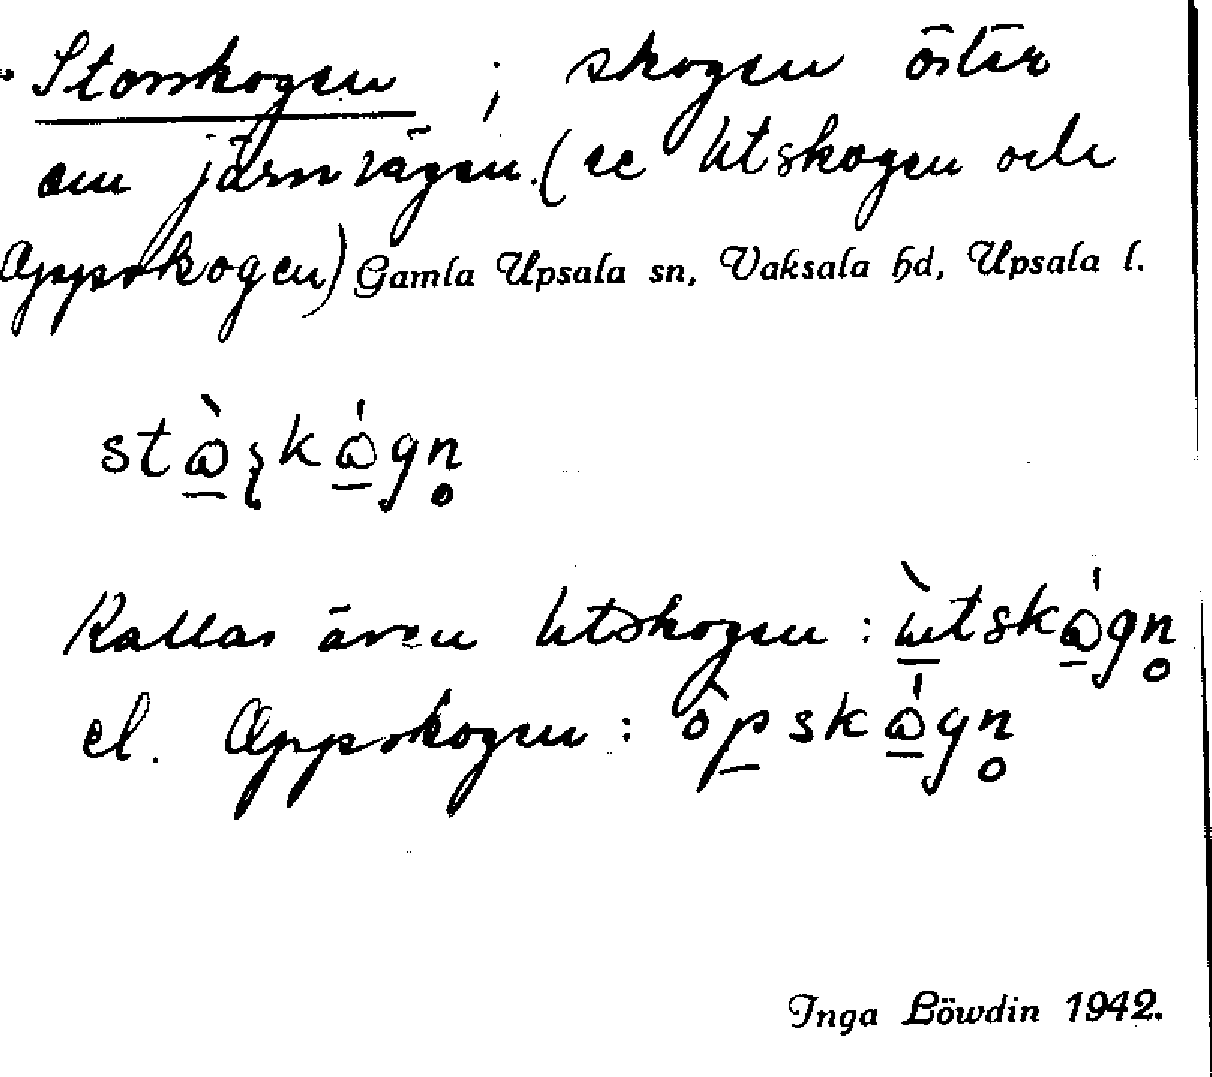 Storskogen ; skogen öster
om järnvägen. (se Utskogen och
Oppskogen) Gamla Upsala sn, Vaksala hd, Upsala l.
Kallas även Utskogen :
el. Oppskogen :
Inga Löwdin 1942.